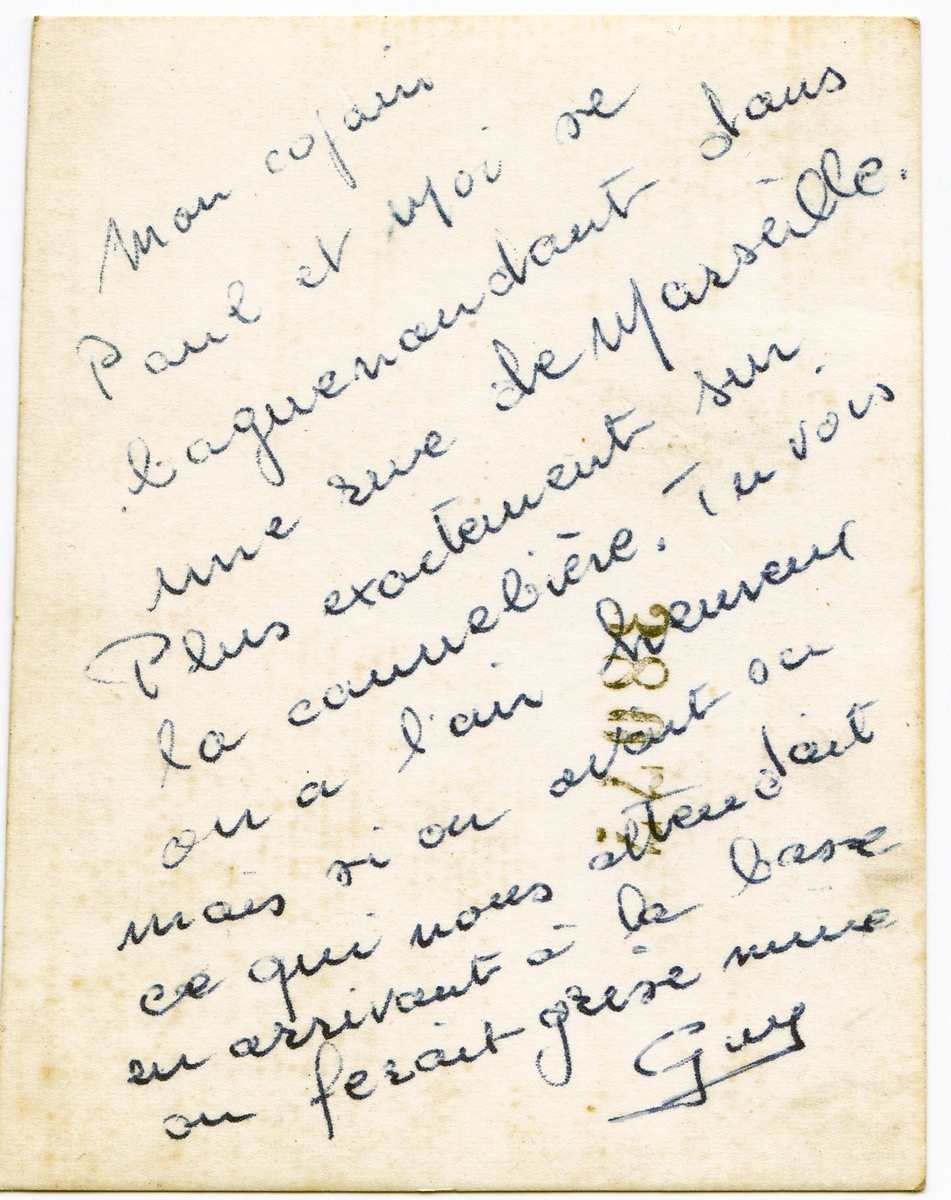 Mon copain
Paul et Moi se
baguenaudant dans
une rue de Marseille.
Plus exactement sur
la cannebière. Tu vois
on a l'air heureux
mais si on avait su
ce qui nous attendait
en arrivant à la base
on ferait grise mine
Guy